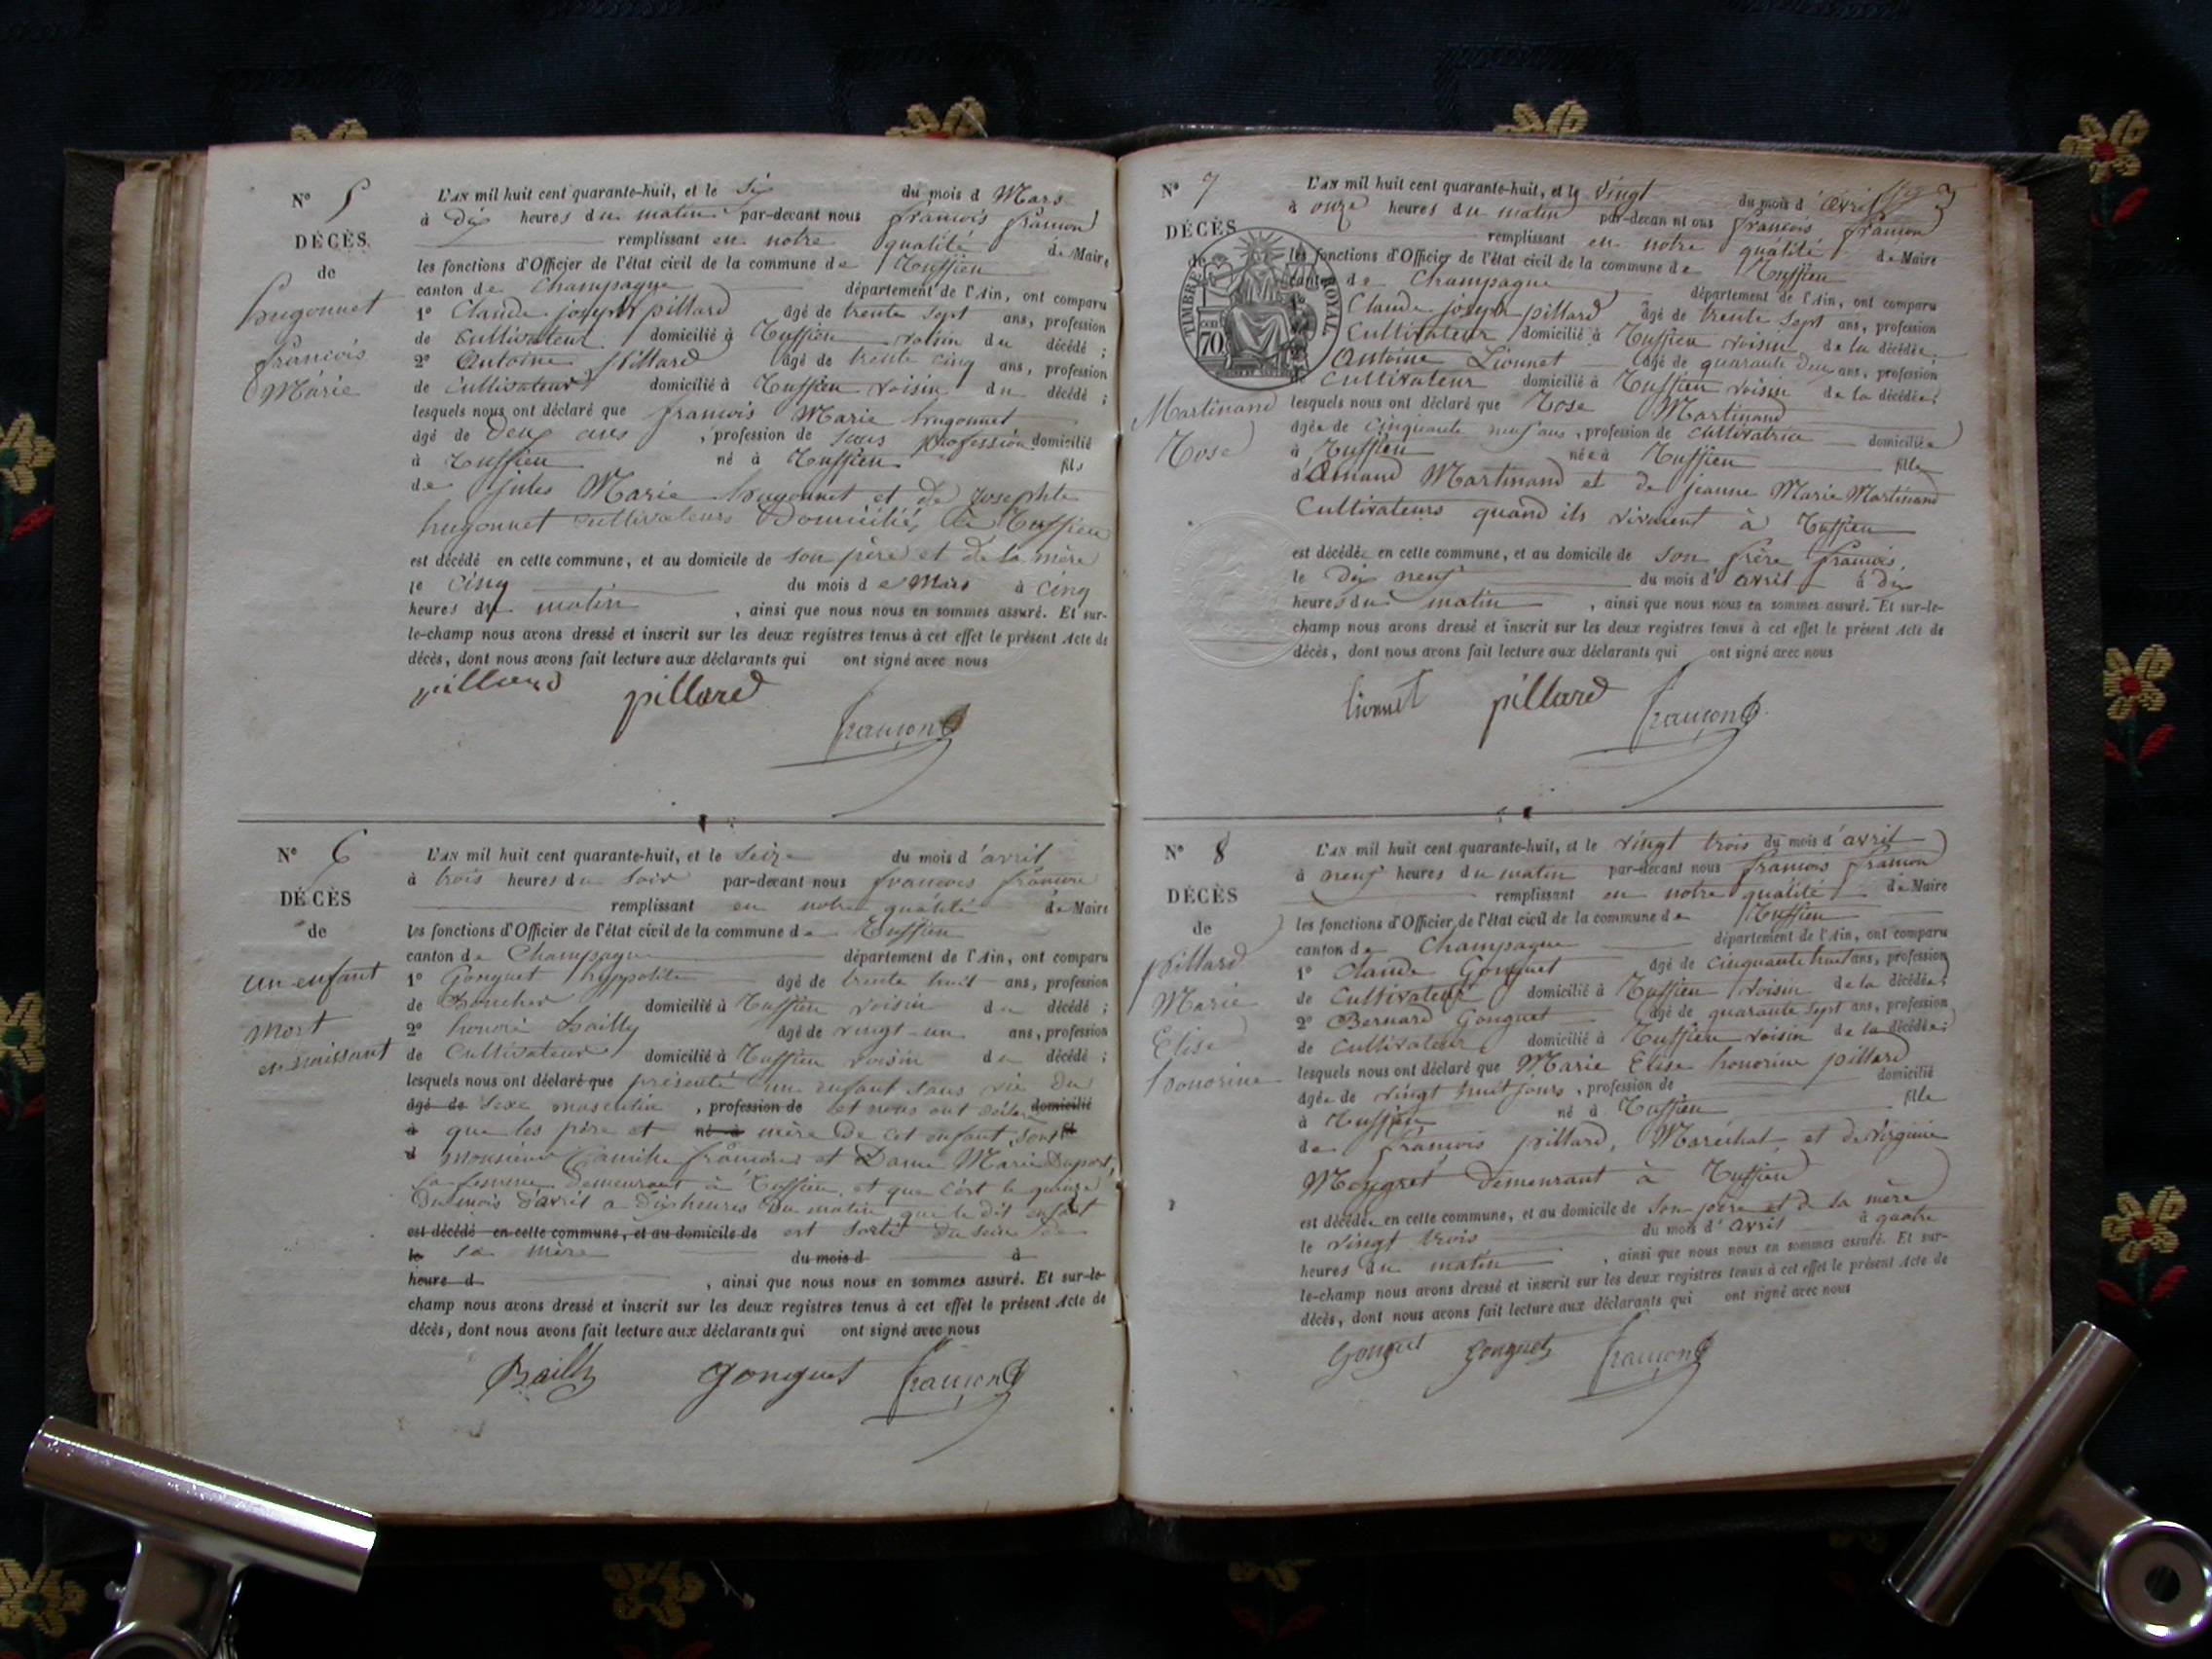 N° 5
DÉCÈS
de
hugonnet
francois
Marie
L'AN mil huit cent quarante-huit, et le Six du mois de Mars
à Dix heures du matin par-devant nous francois françon
remplissant en notre qualité de Maire
les fonctions d'Officier de l'état civil de la commune de Ruffieu
canton de Champagne département de l'Ain, ont comparu
1° Claude joseph pillard âgé de trente Sept ans, profession
de Cultivateur domicilié à Ruffieu voisin du décédé ;
2° Antoine pillard âgé de trente cinq ans, profession
de Cultivateur domicilié à Ruffieu voisin du décédé ;
lesquels nous ont déclaré que francois Marie hugonnet
âgé de Deux ans , profession de Sans profession domicilié
à Ruffieu né à Ruffieu fils
de jules Marie hugonnet et de Josephte
hugonnet cultivateurs Domiciliés à Ruffieu
est décédé en cette commune, et au domicile de son père et de sa mère
le cinq du mois de Mars à cinq
heures du matin , ainsi que nous nous en sommes assuré. Et sur-
le-champ nous avons dressé et inscrit sur les deux registres tenus à cet effet le présent Acte de
décès, dont nous avons fait lecture aux déclarants qui ont signé avec nous
pillard pillard françon
N° 6
DÉCÈS
de
un enfant
mort
en naissant
L'AN mil huit cent quarante-huit, et le Seize du mois d'avril
à trois heures du Soir par-devant nous francois françon
remplissant en notre qualité de Maire
les fonctions d'Officier de l'état civil de la commune de Ruffieu
canton de Champagne département de l'Ain, ont comparu
1° Gonguet hyppolite âgé de trente huit ans, profession
de Boucher domicilié à Ruffieu voisin du décédé ;
2° honoré Bailly âgé de vingt-un ans, profession
de Cultivateur domicilié à Ruffieu voisin du décédé ;
lesquels nous ont déclaré que présenté un enfant sans vie du
âgé de Sexe masculin , profession de et nous ont déclaré domicilié
à que les père et né à mère de cet enfant sont
d monsieur Camille françon et Dame Marie Duport,
sa femme demeurant à Ruffieu, et que c'est le quinze
Du mois d'avril a Dix heures du matin que le dit enfant
est décédé en cette commune, et au domicile de est sorti du sein de
le sa mère du mois d à
heure d , ainsi que nous nous en sommes assuré. Et sur-le-
champ nous avons dressé et inscrit sur les deux registres tenus à cet effet le présent Acte de
décès, dont nous avons fait lecture aux déclarants qui ont signé avec nous
Bailly gonguet françon
N° 7
DÉCÈS
de
TIMBRE ROYAL
70
Martinand
Rose
L'AN mil huit cent quarante-huit, et le vingt du mois d'avril
à onze heures du matin par-devan nt ous francois françon
remplissant en notre qualité de Maire
les fonctions d'Officier de l'état civil de la commune de Ruffieu
canton de Champagne département de l'Ain, ont comparu
1° Claude joseph pillard âgé de trente Sept ans, profession
Cultivateur domicilié à Ruffieu voisin de la décédée ;
Antoine Lionnet âgé de quarante Deux ans, profession
de Cultivateur domicilié à Ruffieu voisin de la décédée ;
lesquels nous ont déclaré que Rose Martinand
âgée de cinquante neuf ans , profession de cultivatrice domiciliée
à Ruffieu née à Ruffieu fille
d'Amand Martinand et de jeanne Marie Martinand
Cultivateurs quand ils vivaient à Ruffieu
est décédée en cette commune, et au domicile de son frère francois,
le Dix neuf du mois d'avril à dix
heures du matin , ainsi que nous nous en sommes assuré. Et sur-le-
champ nous avons dressé et inscrit sur les deux registres tenus à cet effet le présent Acte de
décès, dont nous avons fait lecture aux déclarants qui ont signé avec nous
lionnet pillard françon
N° 8
DÉCÈS
de
pillard
Marie
Elise
honorine
L'AN mil huit cent quarante-huit, et le vingt trois du mois d'avril
à neuf heures du matin par-devant nous francois françon
remplissant en notre qualité de Maire
les fonctions d'Officier de l'état civil de la commune de Ruffieu
canton de Champagne département de l'Ain, ont comparu
1° Claude Gonguet âgé de cinquante huit ans, profession
de Cultivateur domicilié à Ruffieu voisin de la décédée ;
2° Bernard Gonguet âgé de quarante Sept ans, profession
de Cultivateur domicilié à Ruffieu voisin de la décédée ;
lesquels nous ont déclaré que Marie Elise honorine pillard
âgée de vingt huit jours , profession de domicilié
à Ruffieu né à Ruffieu fille
de francois pillard, Maréchal et de Virginie
Demeurant à Ruffieu
est décédée en cette commune, et au domicile de son père et de sa mère
le vingt trois du mois d'avril à quatre
heures du matin , ainsi que nous nous en sommes assuré. Et sur-
le-champ nous avons dressé et inscrit sur les deux registres tenus à cet effet le présent Acte de
décès, dont nous avons fait lecture aux déclarants qui ont signé avec nous
Gonguet gonguet françon